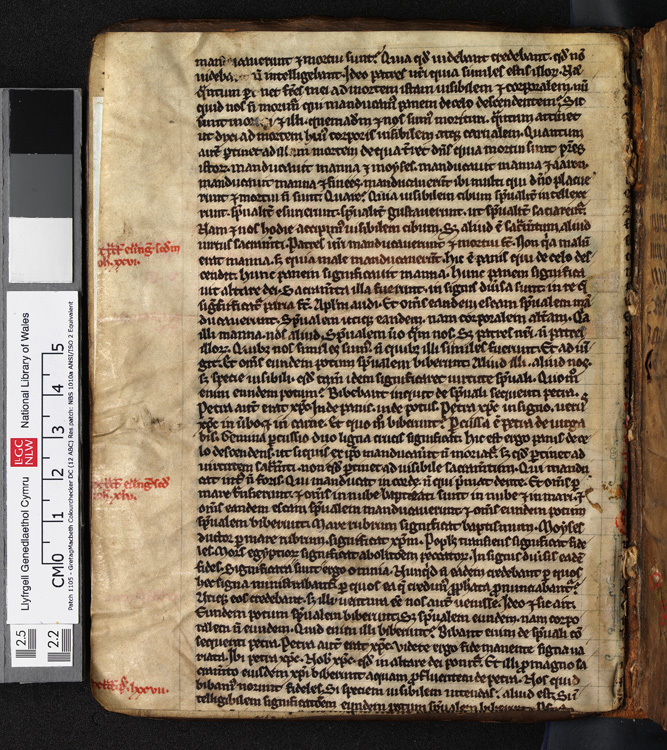 manducauerunt ⁊ mortui sunt. Quia qd uidebant credebant. qd nō
uidebant ñ intelligebant. Ideo patres ur̄i quia similes estis illoꝝ. Nā
q̄ntum ꝑtinet fr̄es mei ad mortem istam uisibilem ⁊ corporalem. nū
quid nos ñ morimͥ qui manducamꝰ panem de celo descendentem. Sic
sunt mortui ⁊ illi. quemadm̄ ⁊ nos sumꝰ morituri. q̄ntum attinet
ut dixi ad mortem huiꝰ corporis uisibilem atqꝫ carnalem. Quantum
aut̄ ꝑtinet ad illam mortem de qua t̄ret dn̄s quia mortui sunt pr̄es
istoꝝ. manducauit manna ⁊ moyses. manducauit manna ⁊ aaron.
manducauit manna ⁊ finees. manducauerūt ibi multi qui dn̄o placue
runt ⁊ mortui ñ sunt. Quare? Quia uisibilem cibum sp̄ualit̄ intellexe
runt. sp̄ualit̄ esurierunt. sp̄ualit̄ gustauerunt. ut sp̄ualit̄ saciarent̄.
Nam ⁊ nos hodie accepimꝰ uisibilem cibum. Sꝫ aliud ē sac̄m̄tum. aliud
uirtus sacram̄ti. Patres ur̄i manducauerunt ⁊ mortui st̄. Non qͥa malū
erat manna. sꝫ quia male manducauerūt. Hic ē panis qui de celo des
cendit. Hunc panem significauit manna. hunc panem significa
uit altare dei. Sac̄m̄ta illa fuerunt. in signis diūsa sunt. in re q̄
significat̄ paria st̄. Apl̄m audi. Et om̄s eandem escam sp̄ualem mā
ducauerunt. Sp̄ualem utiqꝫ eandem. nam corporalem alt̄am. Qͥa
illi manna. nos aliud. Sp̄ualem uo qͣm nos. Sꝫ patres nr̄i. ñ patres
illoꝝ. Quibꝫ nos similes sumꝰ. ñ quibꝫ illi similes fuerunt. Et adiū
git. Et om̄s eundem potum sp̄ualem biberunt. Aliud illi. aliud nos.
sꝫ specie uisibili. qd tam̄ idem significaret uirtute sp̄uali. Quom̊
enim eundem potum? Bibebant inquit de sp̄uali sequenti petra.
Petra aut̄ erat xp̄c. Inde panis. inde potus. Petra xp̄c in signo. uerꝰ
xp̄c in ūbo ⁊ in carne. Et quom̊ biberunt? P̄cussa ē petra de uirga
bis. Gemina ꝑcussio duo ligna crucis significat. Hic est ergo panis de ce
lo descendens. ut si quis ex ip̄o manducauit ñ moriat̄. sꝫ qd ꝑtinet ad
uirtutem sac̄m̄ti. non qd ꝑtinet ad uisibile sacram̄tum. Qui mandu
cat int̄ꝰ ñ foris. Qui manducat in corde. ñ qui p̄mit dente. Et om̄s p̄
mare t̄nsierunt. ⁊ om̄s in nube baptizati sunt in nube ⁊ in mari. ⁊
om̄s eandem escam sp̄ualem manducauerunt. ⁊ om̄s eundem potum
sp̄ualem biberunt. Mare rubrum significat baptismum. Moyses
ductor ꝑ mare rubrum. significat xp̄m. Popl̄s transiens significat fide
les. Mors egyptioꝝ significat abolitōem peccatoꝝ. In signis diūsis eadē
fides. Significata sunt ergo omnia. Nunqd ñ eadem credebant ꝑ quos
hec signa ministrabant̄. ꝑ quos ea q̄ credimꝰ ꝓphetata ꝓnunciabant̄?
Utiqꝫ eos credebant. sꝫ illi uentura eē. nos aut̄ uenisse. Ideo ⁊ sic ait.
Eundem potum sp̄ualem biberunt. Sꝫ sp̄ualem eundem. nam corpo
ralem ñ eundem. Quid enim illi biberunt? Bibant enim de sp̄uali eō
sequenti petra. Petra aut̄ erat xp̄c. Videte ergo fide manente signa ua
riata. Ibi petra xp̄c. Nob̄ xp̄c. qd in altare dei ponit̄. Et illi ꝓ magno sa
cm̄nto eiusdem xp̄i biberunt aquam ꝓfluentem de petra. Nos quid
bibamꝰ norunt fideles. Si speciem uisibilem intendas. aliud est. Si in
telligibilem significatōem eundem potum sp̄ualem biberunt.
Llyfrgell Genedlaethol Cymru
National Library of Wales
LLGC
NLW
CM 0 1 2 3 4 5
Patch 1105 - GretagMacbeth Colourchecker DC (12 ABC) Res patch: NBS 1010a ANSI/ISO 2 Equivalent
2.5
2.2